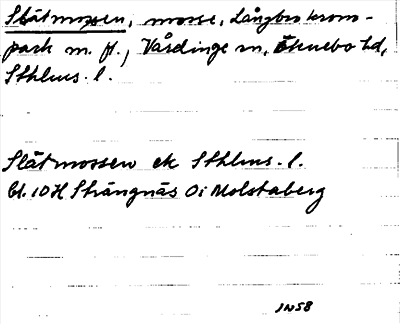 Slätmossen, mosse, Långbro krono-
park m. fl., Vårdinge sn, Öknebo hd,
Sthlms. l.
Slätmossen ek Sthlms. l.
bl. 10 H Strängnäs Oi Molstaberg
IN58